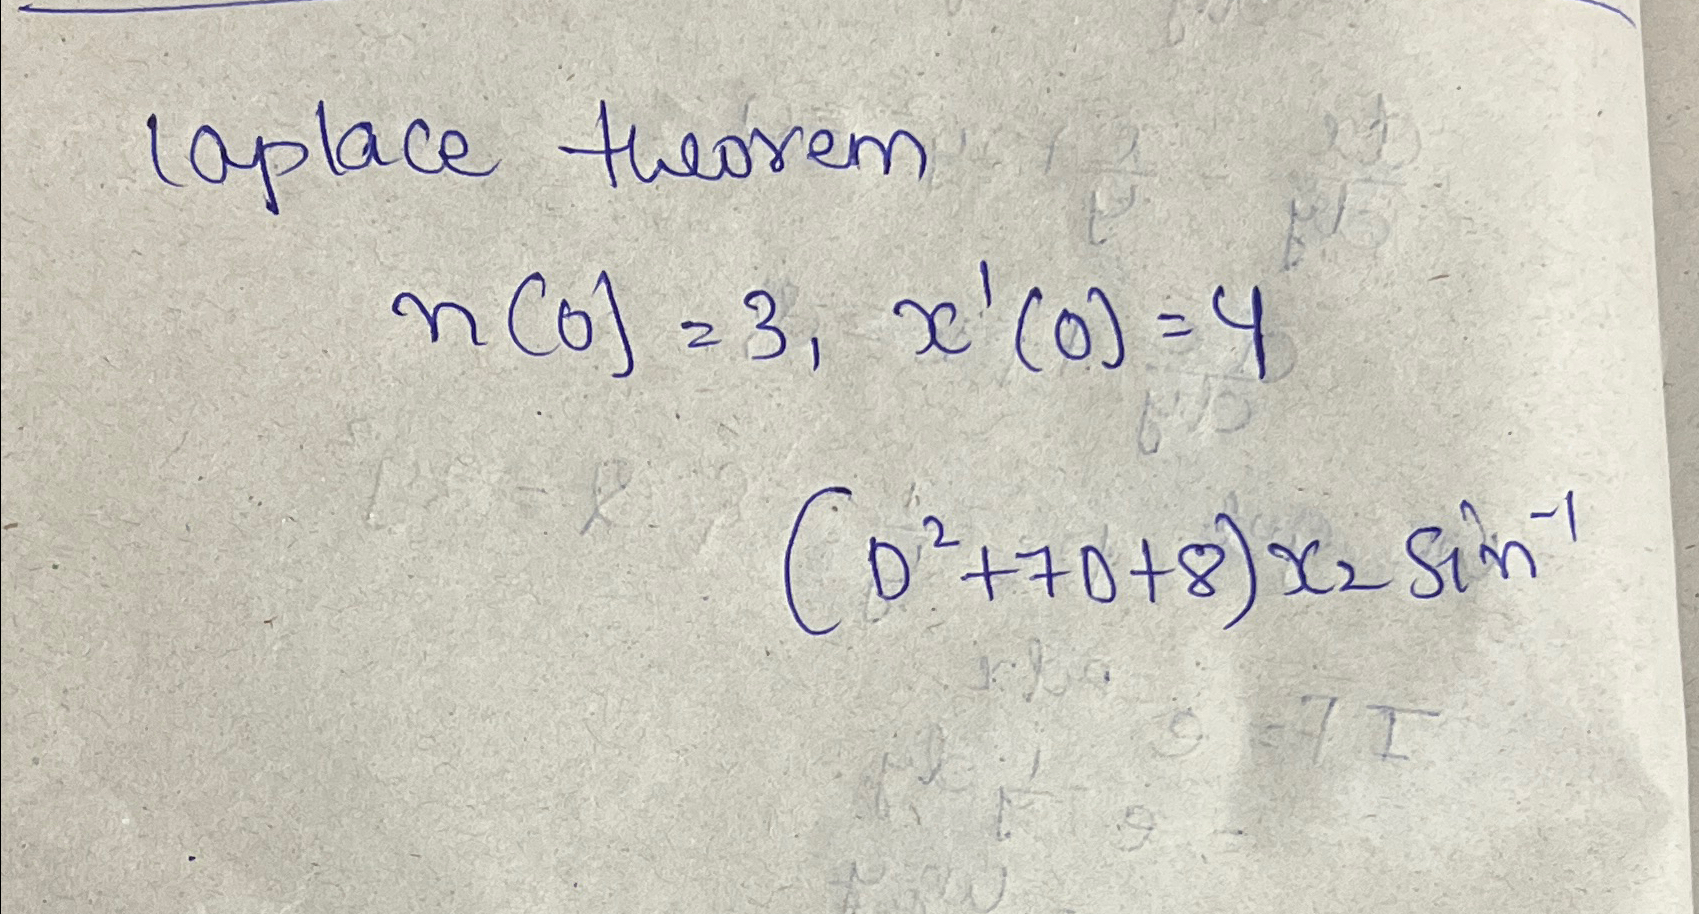 laplace theorem
x(0) = 3, x'(0) = 4
(D²+7D+8)x = Sin⁻¹